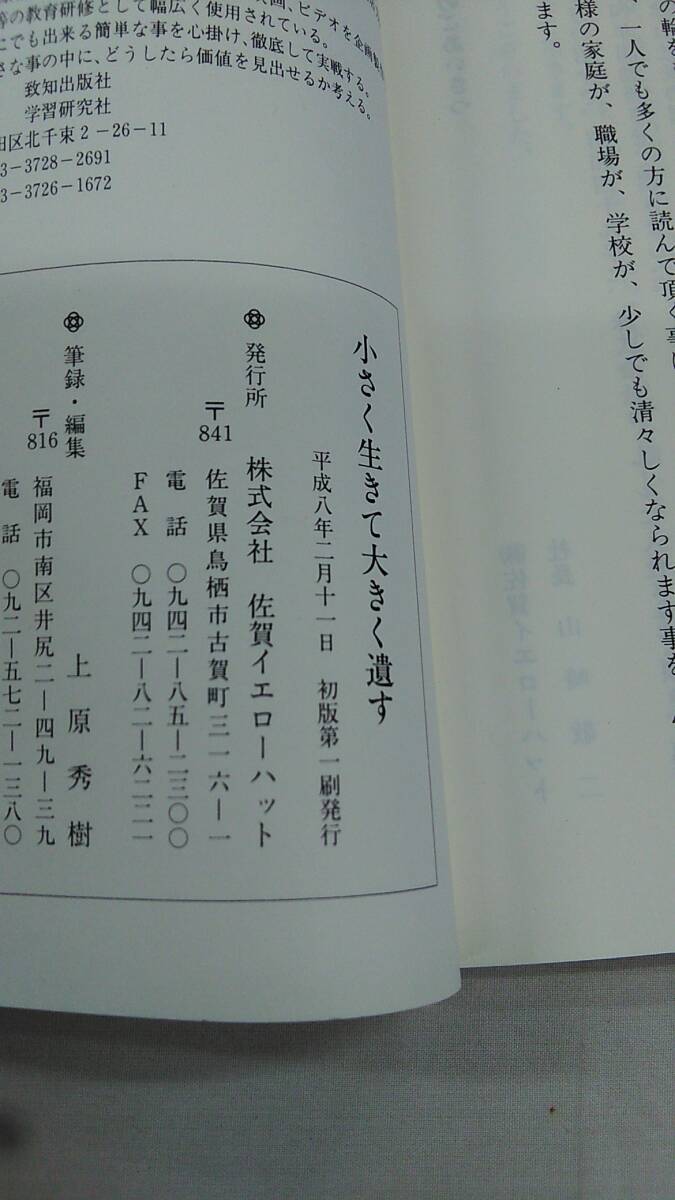 の輪を
、一人でも多くの方に読んで頂く事
様の家庭が、職場が、学校が、少しでも清々しくなられます事を
ます。
画、ビデオを企画
等の教育研修として幅広く使用されている。
にでも出来る簡単な事を心掛け、徹底して実戦する。
さな事の中に、どうしたら価値を見出せるか考える。
致知出版社
学習研究社
田区北千束2-26-11
3-3728-2691
3-3726-1672
小さく生きて大きく遺す
平成八年二月十一日 初版第一刷発行
発行所 株式会社 佐賀イエローハット
〒841 佐賀県鳥栖市古賀町三一六―一
電話 〇九四二―八五―二三〇〇
FAX 〇九四二―八二―六二二一
筆録・編集 上原秀樹
〒816 福岡市南区井尻二―四九―三九
電話 〇九二―五七二―一三八〇